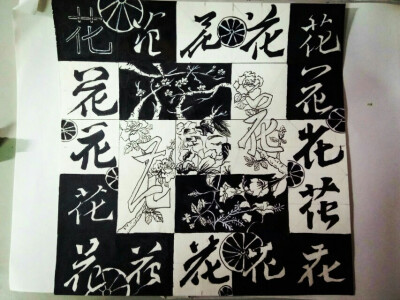 花 花 花 花 花
花 花
花 花 花 花
花 花
花 花 花 花 花